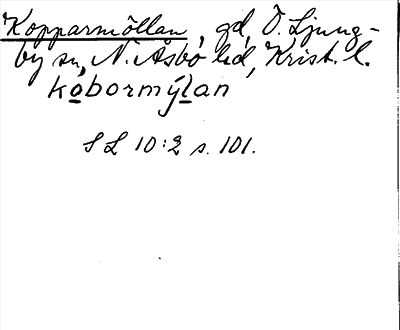 Kopparmöllan, gd, Ö. Ljung-
by sn, N. Åsbo hd, Krist. l.
kobormýlan
S L 10:2 s. 101.